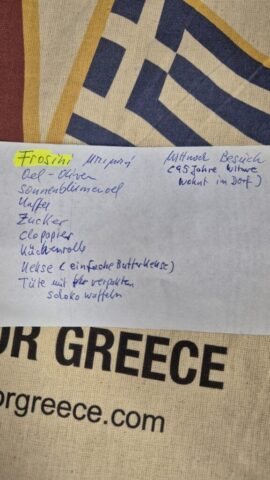 Frosini
Mittwoch Besuch
(95 Jahre Witwe
wohnt im Dorf)
Oel - Oliven
Sonnenblumenoel
Kaffee
Zucker
Clopapier
Küchenrolle
Kekse (einfache Butterkekse)
Tüte mit verpakten
Schoko waffeln
OR GREECE
orgreece.com